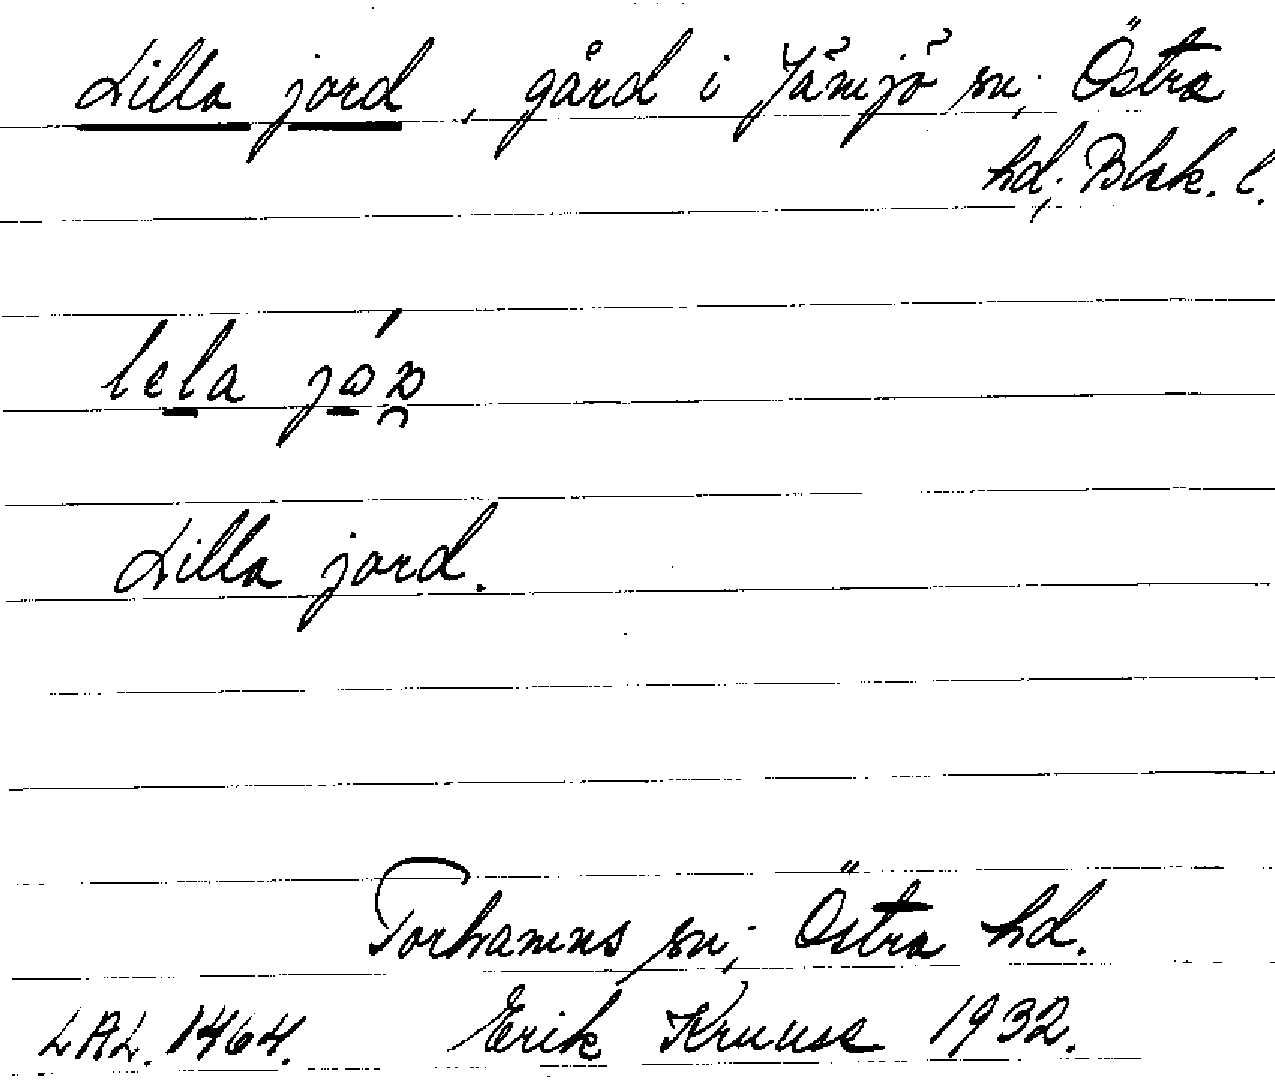 Lilla jord, gård i Jämjö sn; Östra
hd; Blek. l.
lela
Lilla jord.
Torhamns sn; Östra hd.
LAL. 1464. Erik Kruuse 1932.